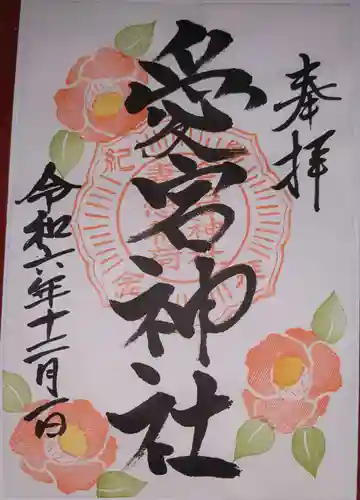 奉拝
愛宕神社
令和六年十二月一日